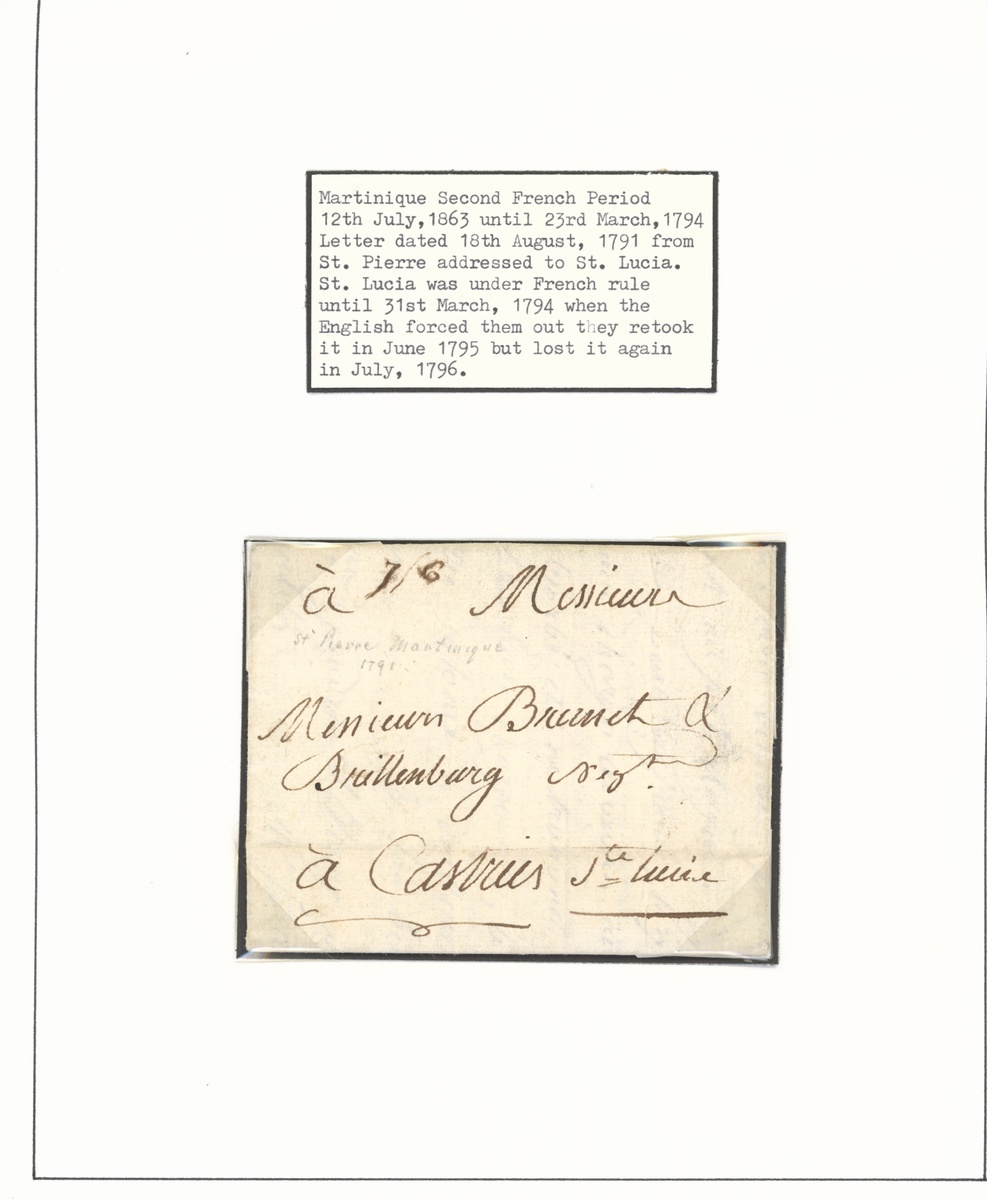 Martinique Second French Period
12th July,1863 until 23rd March,1794
Letter dated 18th August, 1791 from
St. Pierre addressed to St. Lucia.
St. Lucia was under French rule
until 31st March, 1794 when the
English forced them out they retook
it in June 1795 but lost it again
in July, 1796.
à 7/6 Messieurs
St Pierre Martinique
1791
Messieurs Brunet &
Brillenburg Negts.
à Castries Ste Lucie